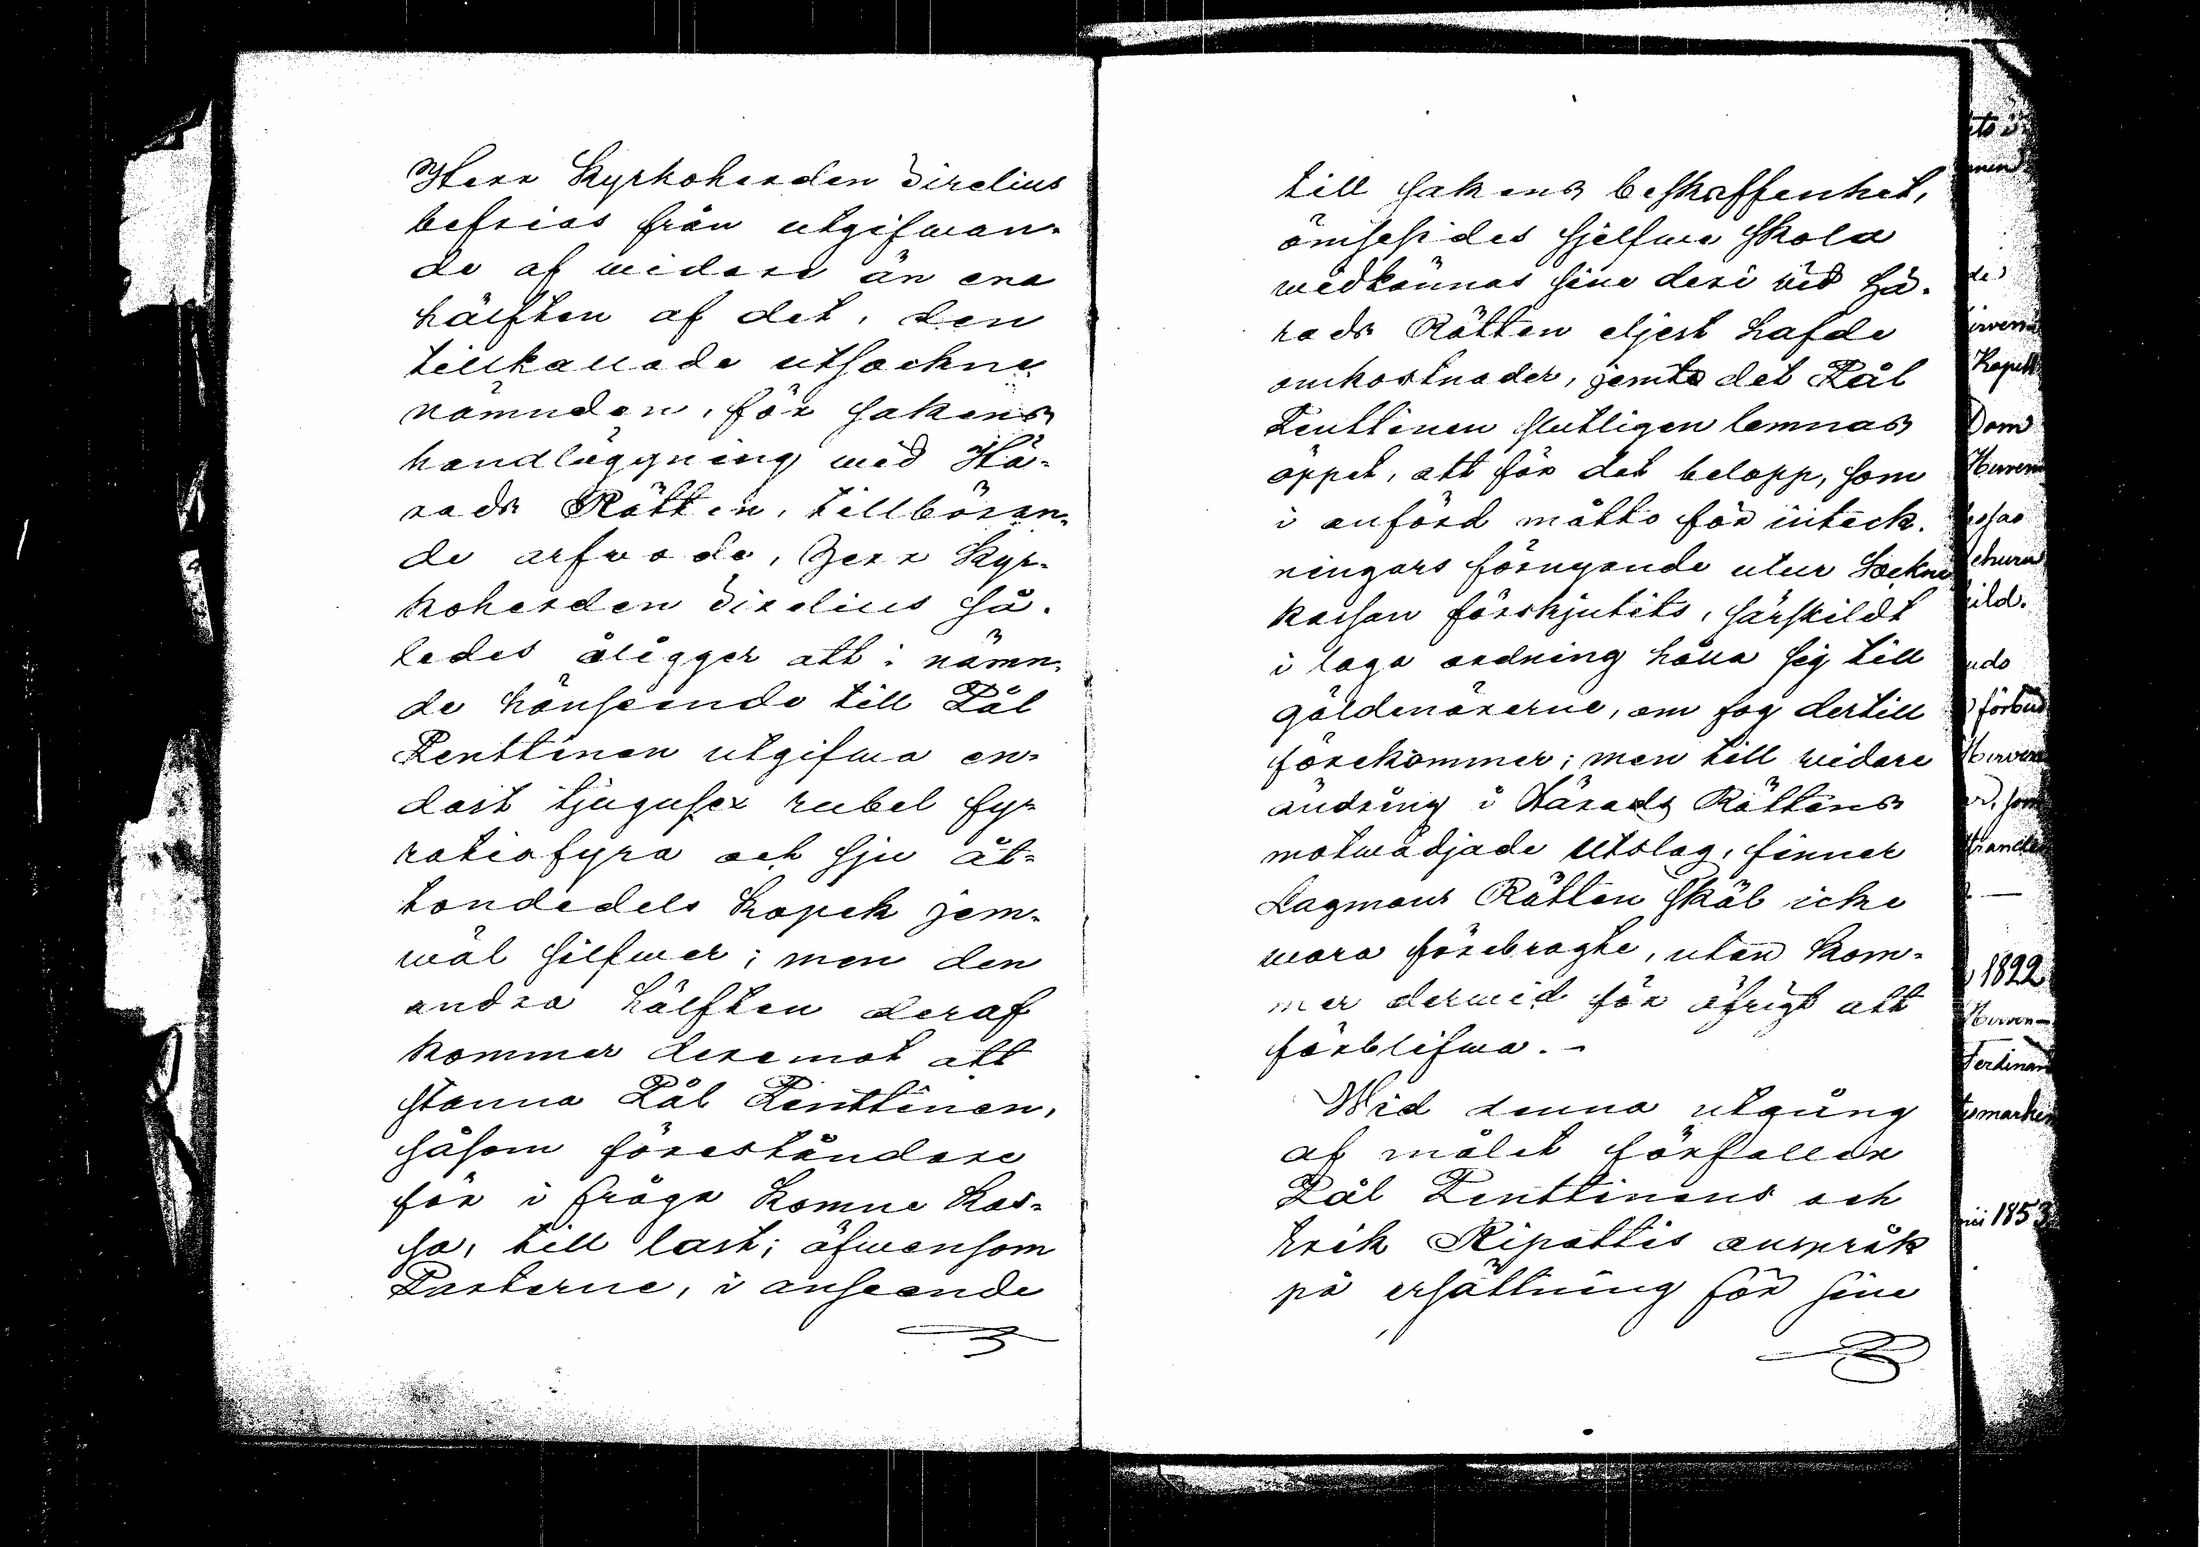 Herr Kyrkoherden Sirelius
befrias från utgifwan-
de af widare än ena
hälften af det, den
tillkallade utsockne
nämnden, för sakens
handläggning wid Hä-
rads Rätten, tillböran-
de arfwode, Herr Kyr-
koherden Sirelius så-
ledes åligger att i nämn-
de hänseende till Pål
Penttinen utgifwa en-
dast tjugusex rubel fyr-
ratiofyra och sju åt-
tondedels kopek jem-
wäl silfwer; men den
andra hälften deraf
kommer deremot att
stanna Pål Penttinen,
såsom föreståndare
för i fråga komne kas-
sa, till last; äfwensom
Parterne, i anseende
till sakens beskaffenhet,
ömsesides sjelfwe skola
widkännas sine deri wid Hä-
rads Rätten eljest hafde
omkostnader, jemte det Pål
Penttinen slutligen lemnas
öppet, att för det belopp, som
i anförd måtto för inteck-
ningars förnyande utur Sockne
kassan förskjutits, särskildt
i laga ordning hålla sig till
gäldenärerne, om fog dertill
förekommer; men till widare
ändring i Härads Rättens
motwädjade utslag, finner
Lagmans Rätten skäl icke
wara förebragte, utan kom-
mer derwid för öfrigt att
förblifwa. -
Wid denna utgång
af målet förfaller
Pål Penttinens och
Erik Ripattis anspråk
på ersättning för sine
Kapell
Dom
förbud
1822
Ferdinand
1853